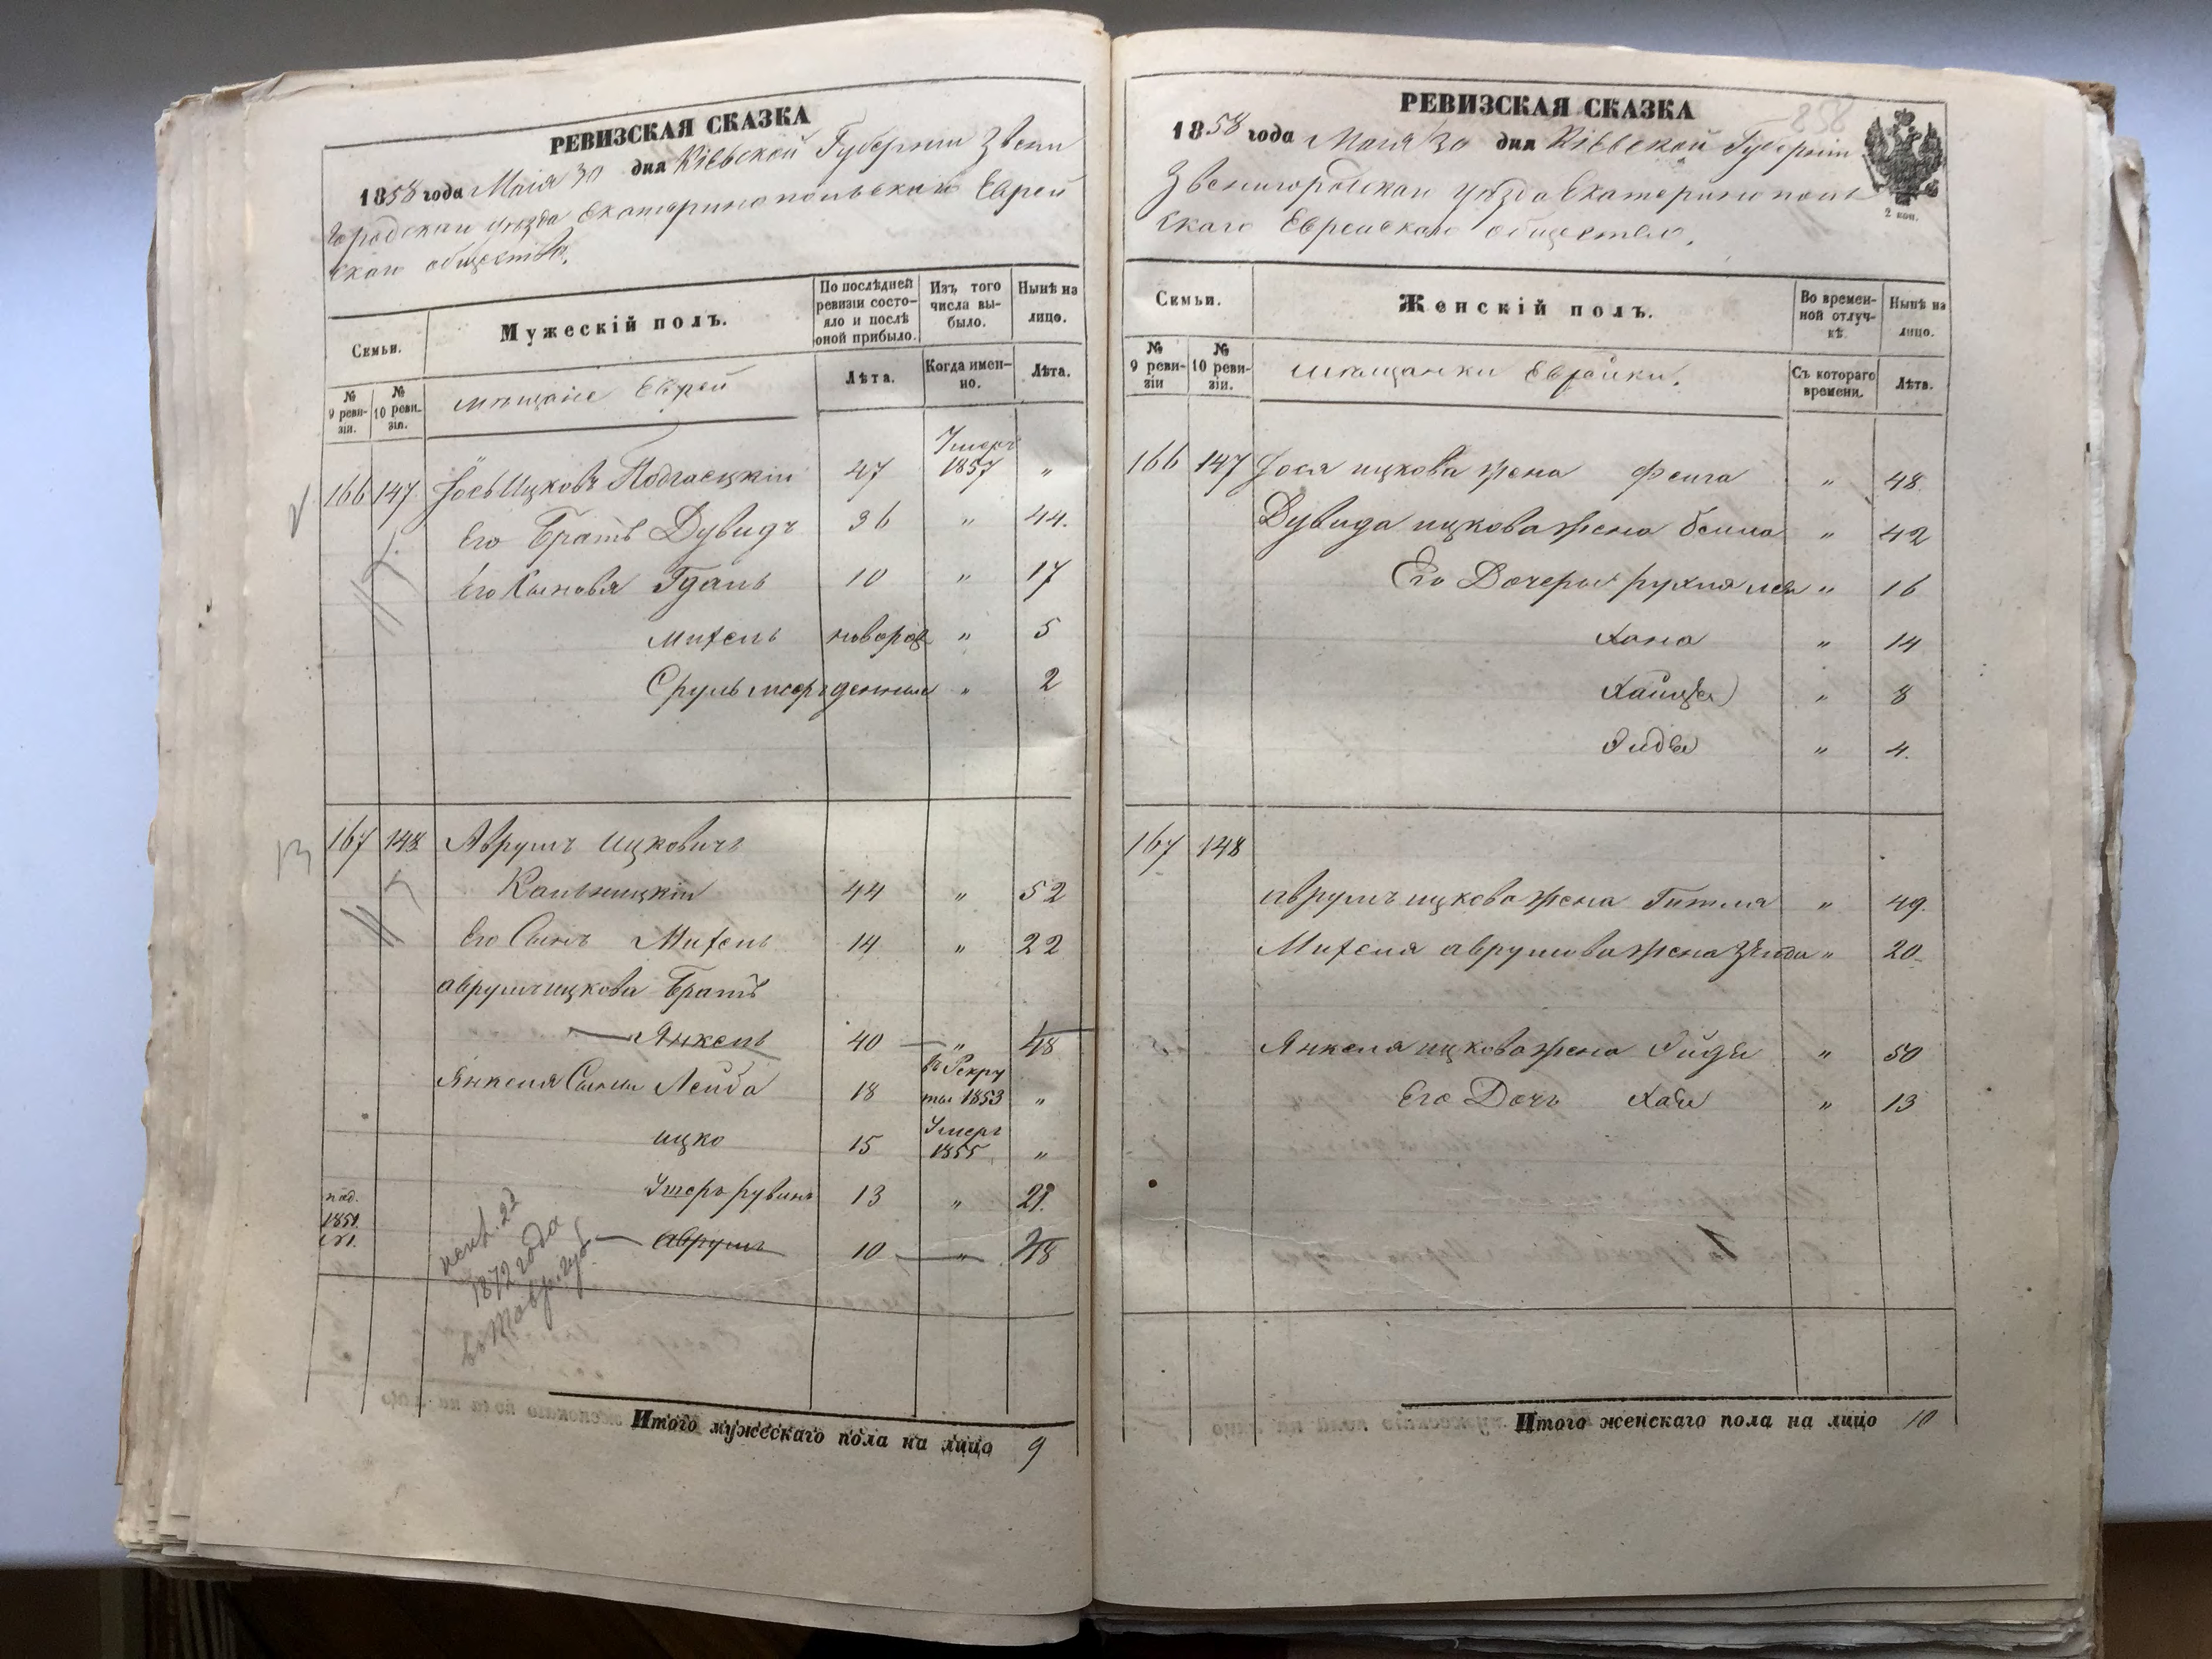 РЕВИЗСКАЯ СКАЗКА
1858 года Маія 30 дня Кіевской Губерніи Звени
городскаго уѣзда Екатеринопольскаго Еврей
скаго общества.
Семьи.
Мужескій полъ.
По послѣдней ревизіи состояло и послѣ оной прибыло.
Изъ того числа выбыло.
Нынѣ на лицо.
№ 9 ревизіи.
№ 10 ревизіи.
мѣщане Евреи
Лѣта.
Когда именно.
Лѣта.
166 147 Іось Ицковъ Подгаецкій 47 Умеръ 1857 "
Его Братъ Дувидъ 36 " 44.
Его Сыновья 10 " 17
Михель новорож " 5
Сруль новорожденный " 2
167 148 Аврумъ Ицковичъ
Кальницкій 44 " 52
Его Сынъ Михель 14 " 22
Аврума Ицкова Братъ
Янкель 40 " 48
Янкеля Сыны Лейба 18 въ Рекруты 1853 "
Ицко 15 Умеръ 1855 "
рувинъ 13 " 21.
Аврумъ 10 " 18
1851.
1872 года
Итого мужескаго пола на лицо 9
РЕВИЗСКАЯ СКАЗКА
858
1858 года Маія 30 дня Кіевской Губерніи
Звенигородскаго уѣзда Екатеринополь
скаго Еврейскаго общества.
2 коп.
Семьи.
Женскій полъ.
Во временной отлучкѣ.
Нынѣ на лицо.
№ 9 ревизіи
№ 10 ревизіи.
мѣщанки Еврейки.
Съ котораго времени.
Лѣта.
166 147 Іося Ицкова жена Фейга " 48
Дувида Ицкова жена Бейла " 42
Его Дочери рухля лея " 16
Хана " 14
" 8
" 4.
167 148
Аврума Ицкова жена Гитля " 49.
Михеля Аврумова жена " 20
Янкеля Ицкова жена " 50
Его Дочь Хава " 13
Итого женскаго пола на лицо 10